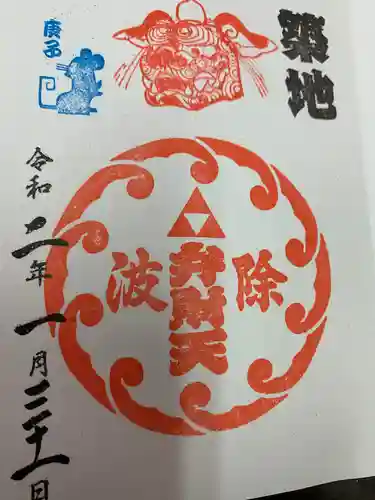 築地
弁財天
除
波
庚子
令和二年一月三十一日